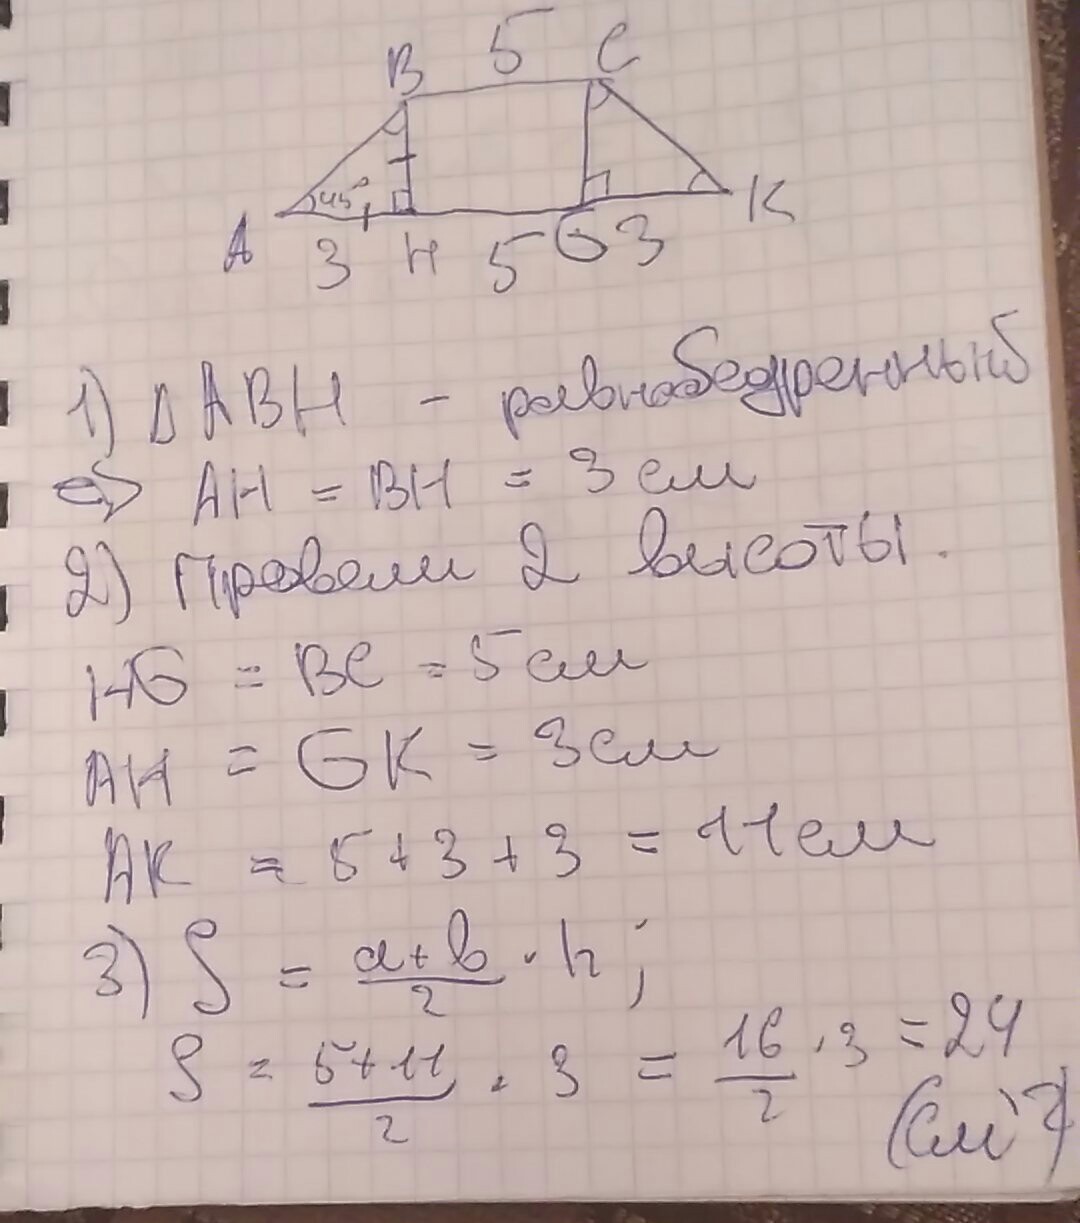 5
B C
45°
A 3 H 5 G 3 K
1) Δ ABH - равнобедренный
⇒ AH = BH = 3 см
2) Провели 2 высоты.
HG = BC = 5 см
AH = GK = 3 см
AK = 5 + 3 + 3 = 11 см
3) S = a+b/2 · h;
S = 5+11/2 · 3 = 16/2 · 3 = 24
(см²)